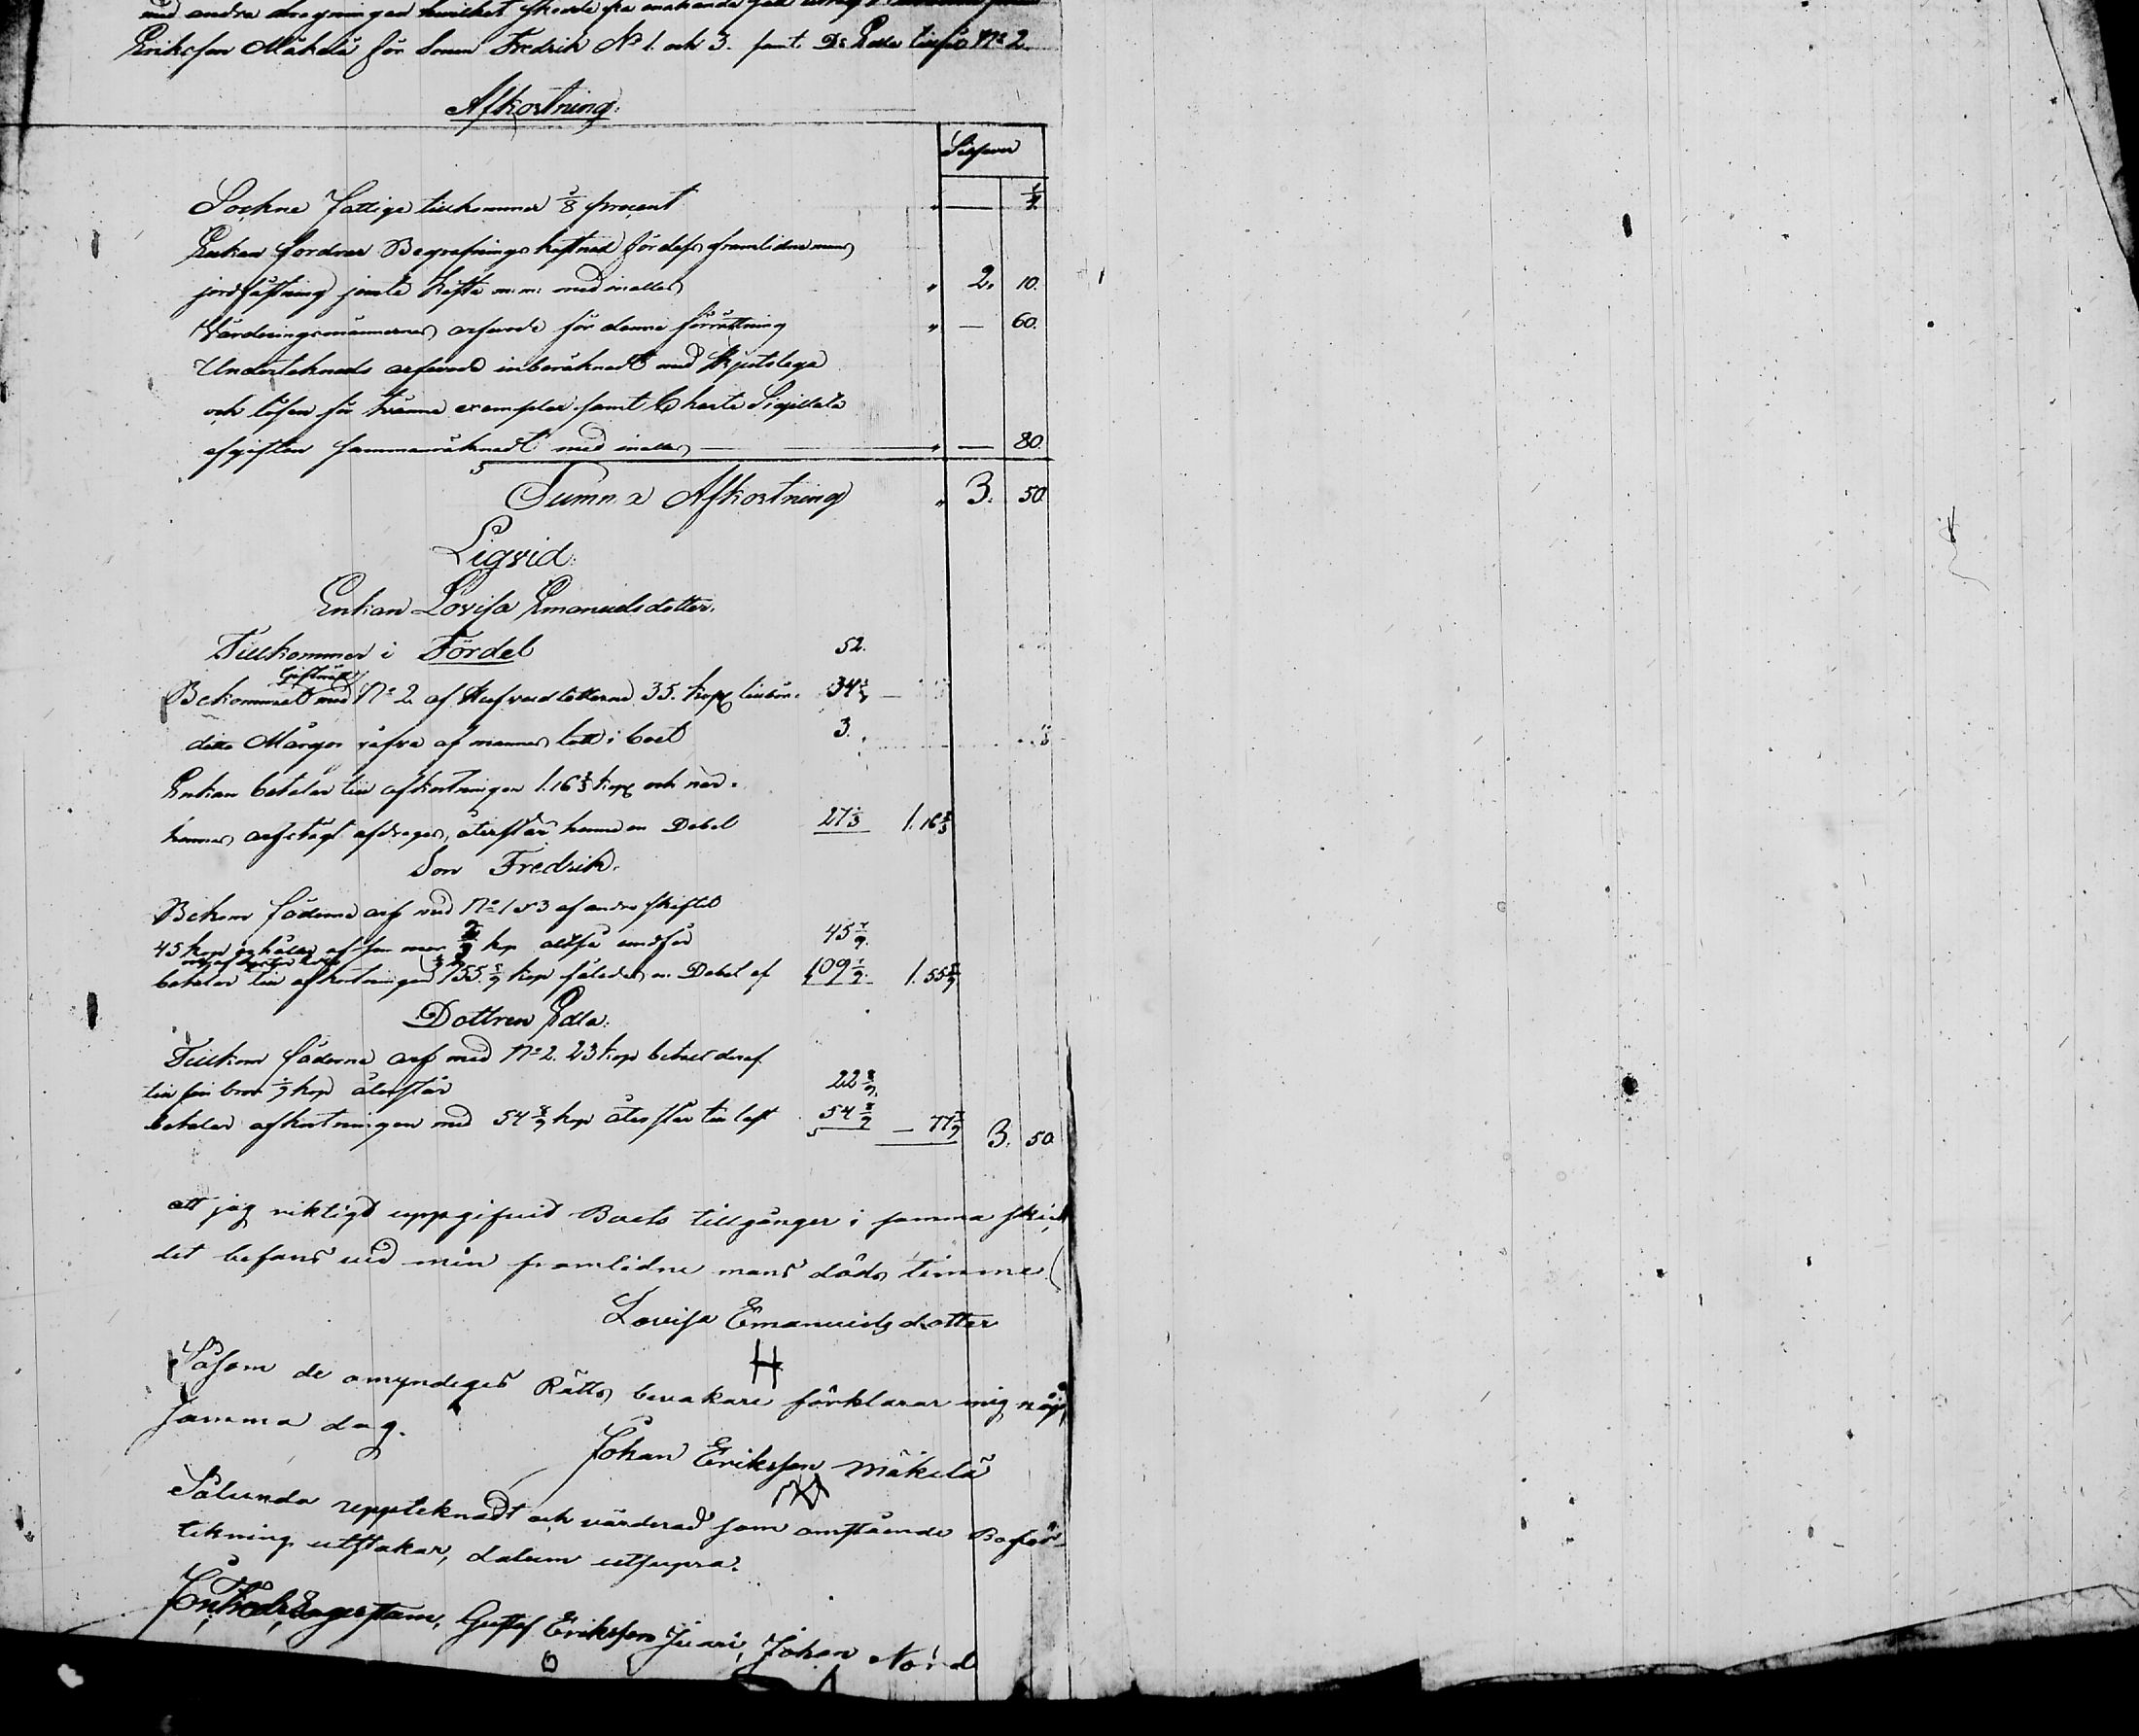 med andra dragningen hvilket skedde
Eriksson Mäkelä för Sonen Fredrik No 1. och 3. samt Do Edla tillföll No 2.
Afkortning:
Silfver
Sockne fattige tillkommer 1/8 procent " —
Enkan fordrar Begrafnings kostnad för dess framlidne mans
jordfästning jemte kista m: m: med inalles " 2. 10.
Värderingsmännernas arfvode för denne förrättning " — 60.
Underteknads arfvode inberäknadt med skjutslega
och lösen för tvänne exemplar samt Charta Sigillata
afgiften sammanräknadt med inalles " — 80.
Summa Afkortning " 3. 50
Liqvid:
Enkan Lovisa Emanuelsdotter.
Tillkommer i Fördel 52.
Giftorätt
Bekommit med No 2 af Hufvudlotterne 35. kop 34
ditto Morgongåfva af mannens lott i boet 3.
Enkan betalar till afkortningen 1.16 2/3 kop och när
hennes afdrages, återstår henne en Debet 27 1/3 1. 16 2/3
Son Fredrik.
Bekom fäderne arf med No 1 & 3 af andra skiftet
45 kop af sin mor kop altså undfår 45 7/9.
betalar till afkortningen 1 55 5/9 kop således en Debet af 109 7/9. 1. 55 5/9
Dottren Edla:
Tillkom fäderne arf med No 2. 23 kop betalt deraf
till sin bror 1/9 kop återstår 22 8/9.
betalar afkortningen med 54 8/9 kop återstår till last 54 8/9 — 77 7/9 3. 50
att jag riktigt uppgifvit Boets tillgånger i samma skick
det befans vid min framlidne mans döds timme
Lovisa Emanuelsdotter
H
Såsom de omyndiges Rätts bevakare förklarar mig nöjd
Samma dag.
Johan Eriksson Mäkelä
Sålunda uppteknadt och värderad som omstående Boför-
tekning utstakar, datum utsupra.
Gustaf Eriksson Juari, Johan Nord